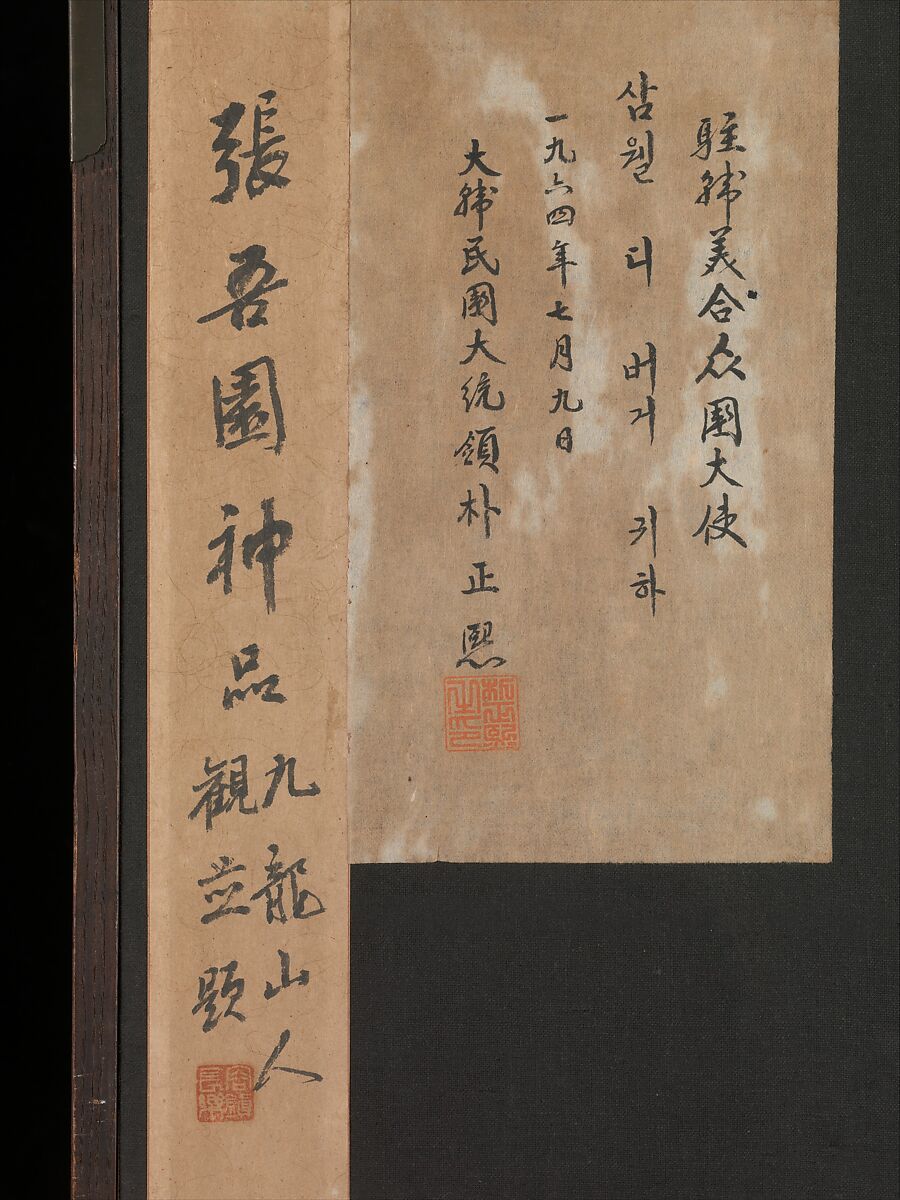 駐韓美合众國大使
삼월 디 버거 귀하
一九六四年七月九日
大韓民國大統領朴正熙
張吾園神品
九龍山人
觀並題